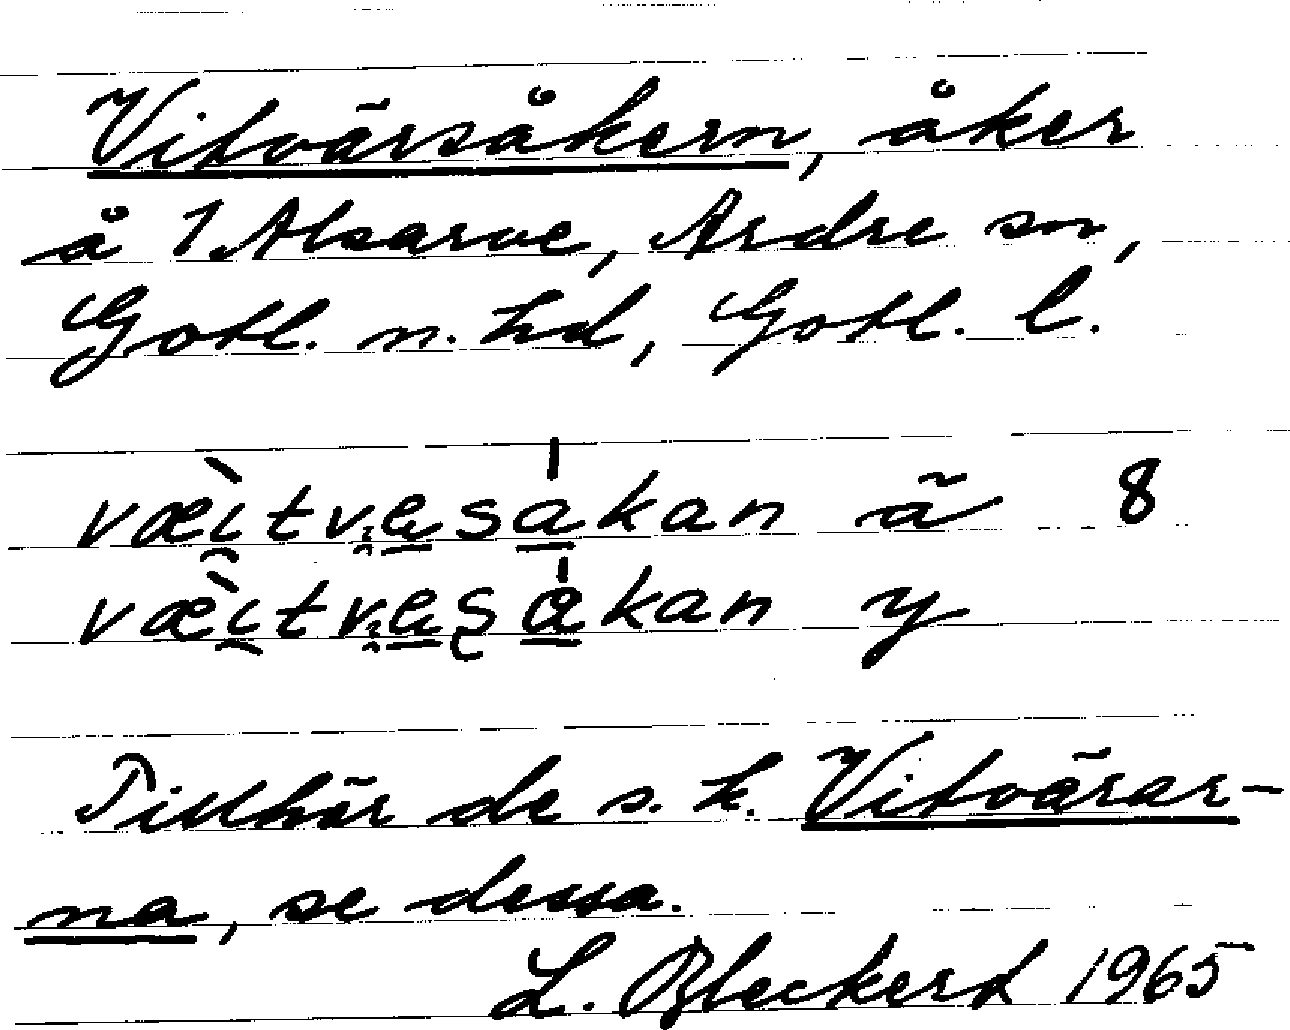 Vitvärsåkern, åker
å 1 Alsarve, Ardre sn,
Gotl. n. hd, Gotl. l.
væ̀i̯tvi̯ɐsákan ä 8
væ̀i̯tvi̯ɐsákan y
Tillhör de s. k. Vitvärar-
na, se dessa.
L. Bleckert 1965